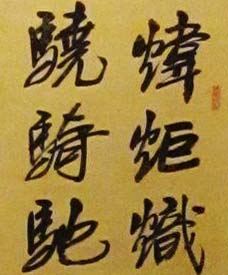 煒炬熾
驍騎馳